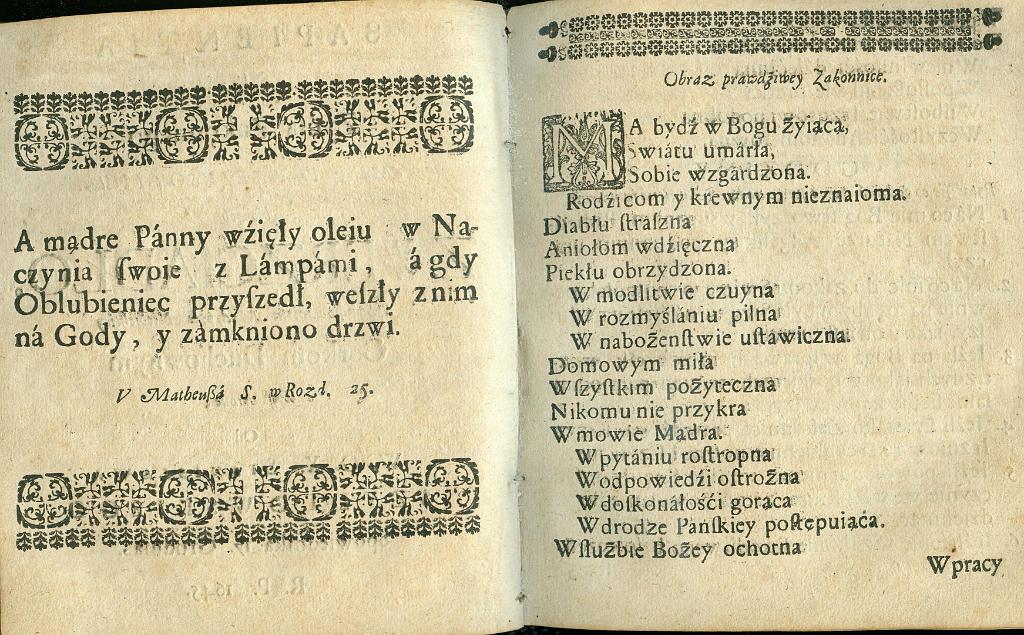 A mądre Pánny wźięły oleiu w Na-
czynia ſwoie z Lámpámi, á gdy
Oblubieniec przyſzedł, weſzły z nim
ná Gody, y zàmkniono drzwi.
V Matheuſſá S. w Rozd. 25.
Obraz prawdźiwey Zakonnice.
MA bydź w Bogu żyiąca,
Swiátu umárła,
Sobie wzgárdzona.
Rodźicom y krewnym nieznaioma.
Diabłu ſtráſzna
Aniołom wdźięczna
Piekłu obrzydzona.
W modlitwie czuyna
W rozmyślániu pilna
W nabożeńſtwie uſtáwiczna.
Domowym miła
Wſzyſtkim pożyteczna
Nikomu nie przykra
W mowie Mądra.
W pytániu roſtropna
W odpowiedźi oſtrożna
W doſkonáłośći gorąca
W drodze Pańſkiey poſtępuiąca.
W ſłużbie Bożey ochotna
W pracy